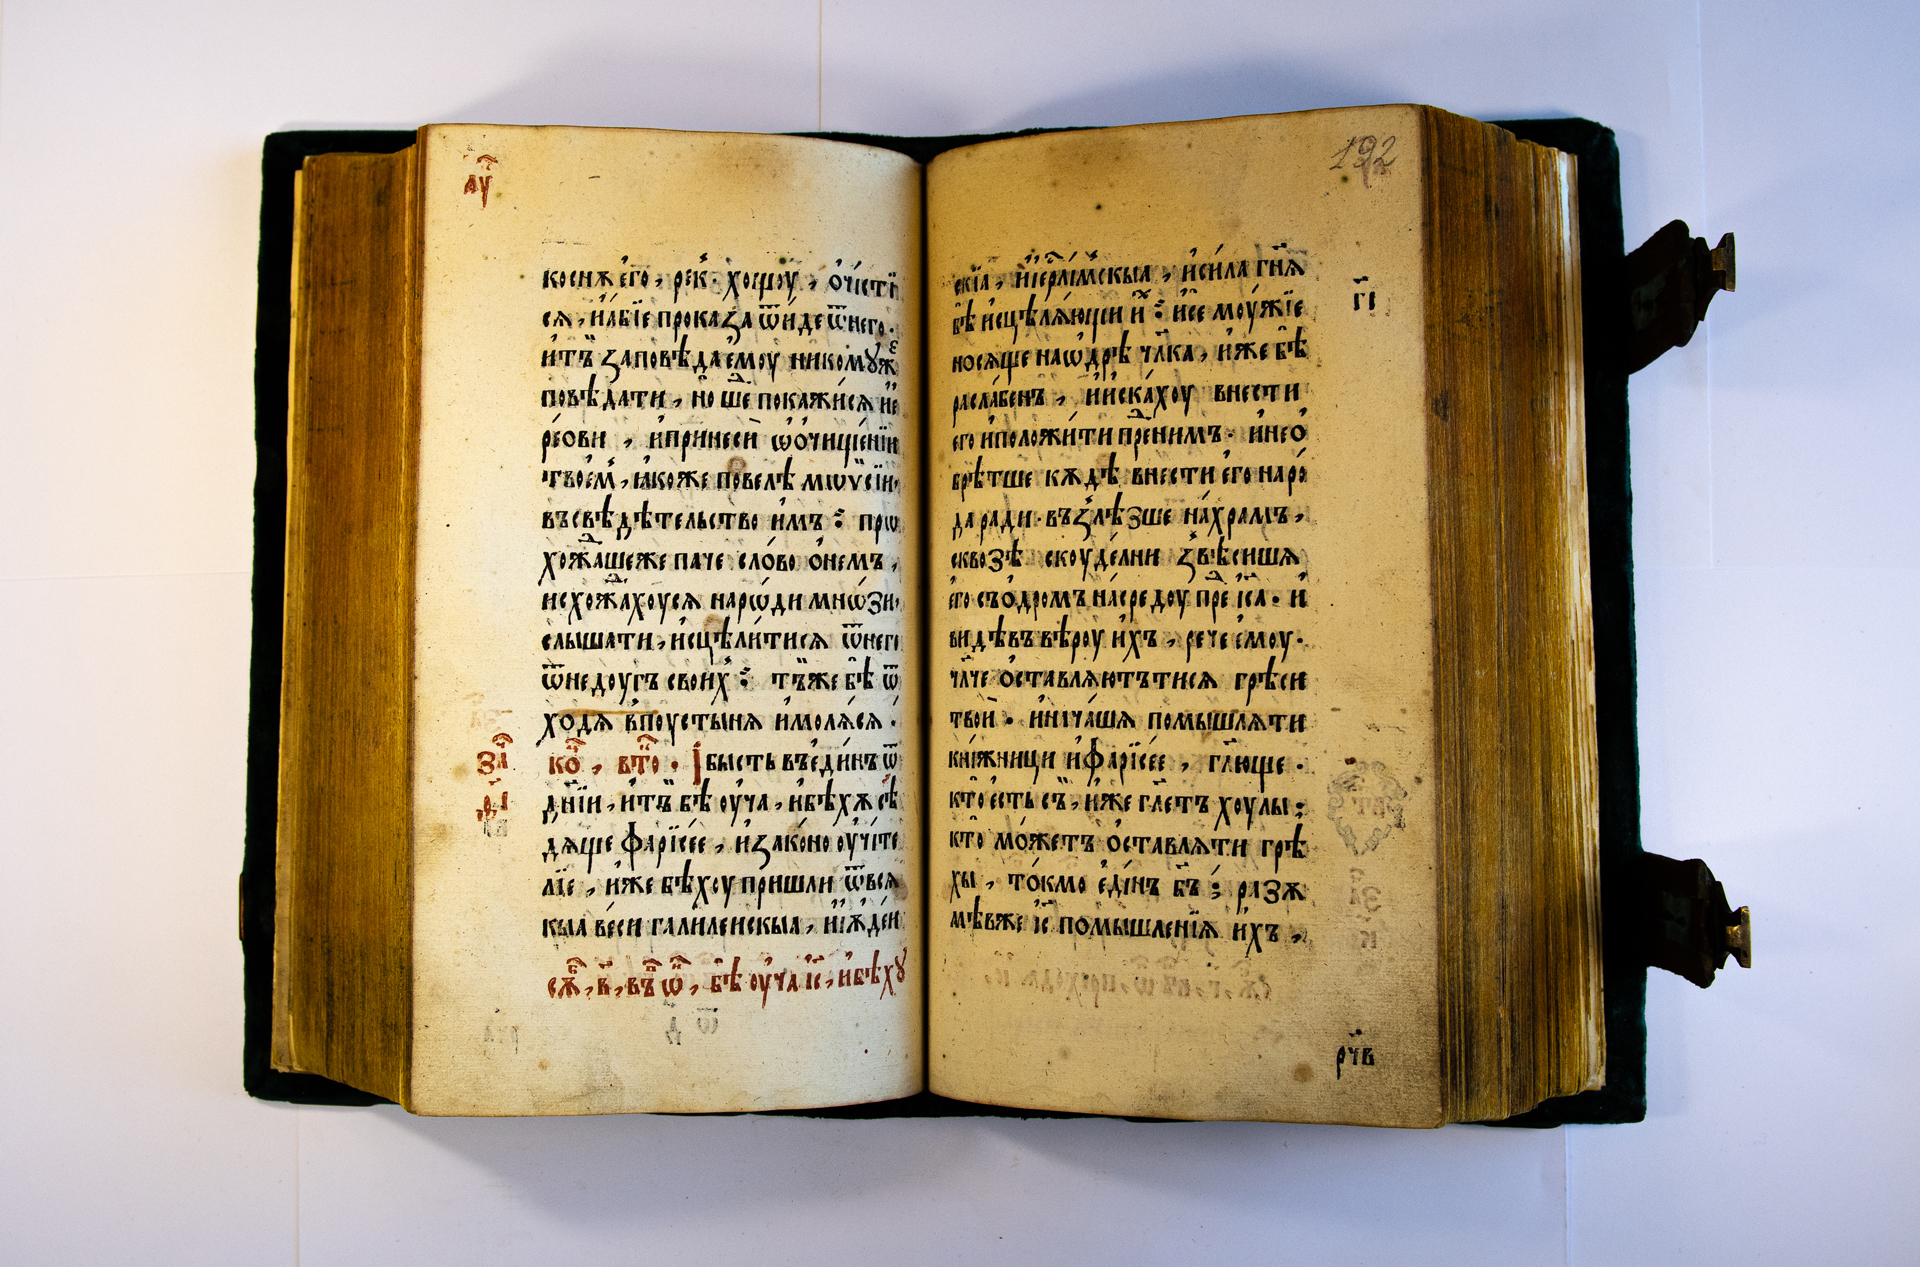 лу҃
коснѫ его, рек҇. хощоу, ѡчисти
сѧ, и абїе проказа ѿиде ѿнего.
итъ заповѣда емоу никомꙋже
повѣдати, но шед покажисѧ ïе
реови, ипринеси ѡочищенїи
твоем, ꙗкоже повелѣ мѡѵсїи,
въсвѣдѣтельство имъ: прѡ
хождашеже паче слово онемъ,
исхождахоусѧ народи мнѡзи,
слышати, исцѣлитисѧ ѿнего
ѿнедоугъ своих: тъже бѣ ѿ
ходѧ впоустынѧ имолѧсѧ.
за҃
ко҃, вто҃. Ꙇбысть въединъ ѿ
дн҃їи, итъ бѣ оуча, ибѣхѫ сѣ
дѧще фарїсее, изаконооучите
лїе, иже бѣхоу пришли ѿвсѧ
кыа веси галилеискыа, иїѫдеи
бѣ оуча іс҃, ибѣхꙋ
192
скїа, иїерл҃імскыа, исила гн҃ѧ
бѣ исцѣлѧющи их: исе моужїе
г҃і
носѧще наѡдрѣ чл҃ка, иже бѣ
раслабенъ, иискахоу внести
его иположити пред нимъ. инео
брѣтше кѫдѣ внести его наро
да ради. възлѣзше нахрамъ,
сквозѣ скоудѣлни звѣсишѧ
его съодромъ насредоу пред іс҃а. и
видѣвъ вѣроу ихъ, рече емоу.
чл҃че оставлѧютътисѧ грѣси
твои. иничашѧ помышлѧти
книжници ифарїсее, гл҃юще.
кто есть съ, иже гл҃етъ хоулы;
кто можетъ оставлѧти грѣ
хы, токмо единъ бг҃ъ; разѫ
мѣвже іс҃ помышленїѧ ихъ,
рч҃в